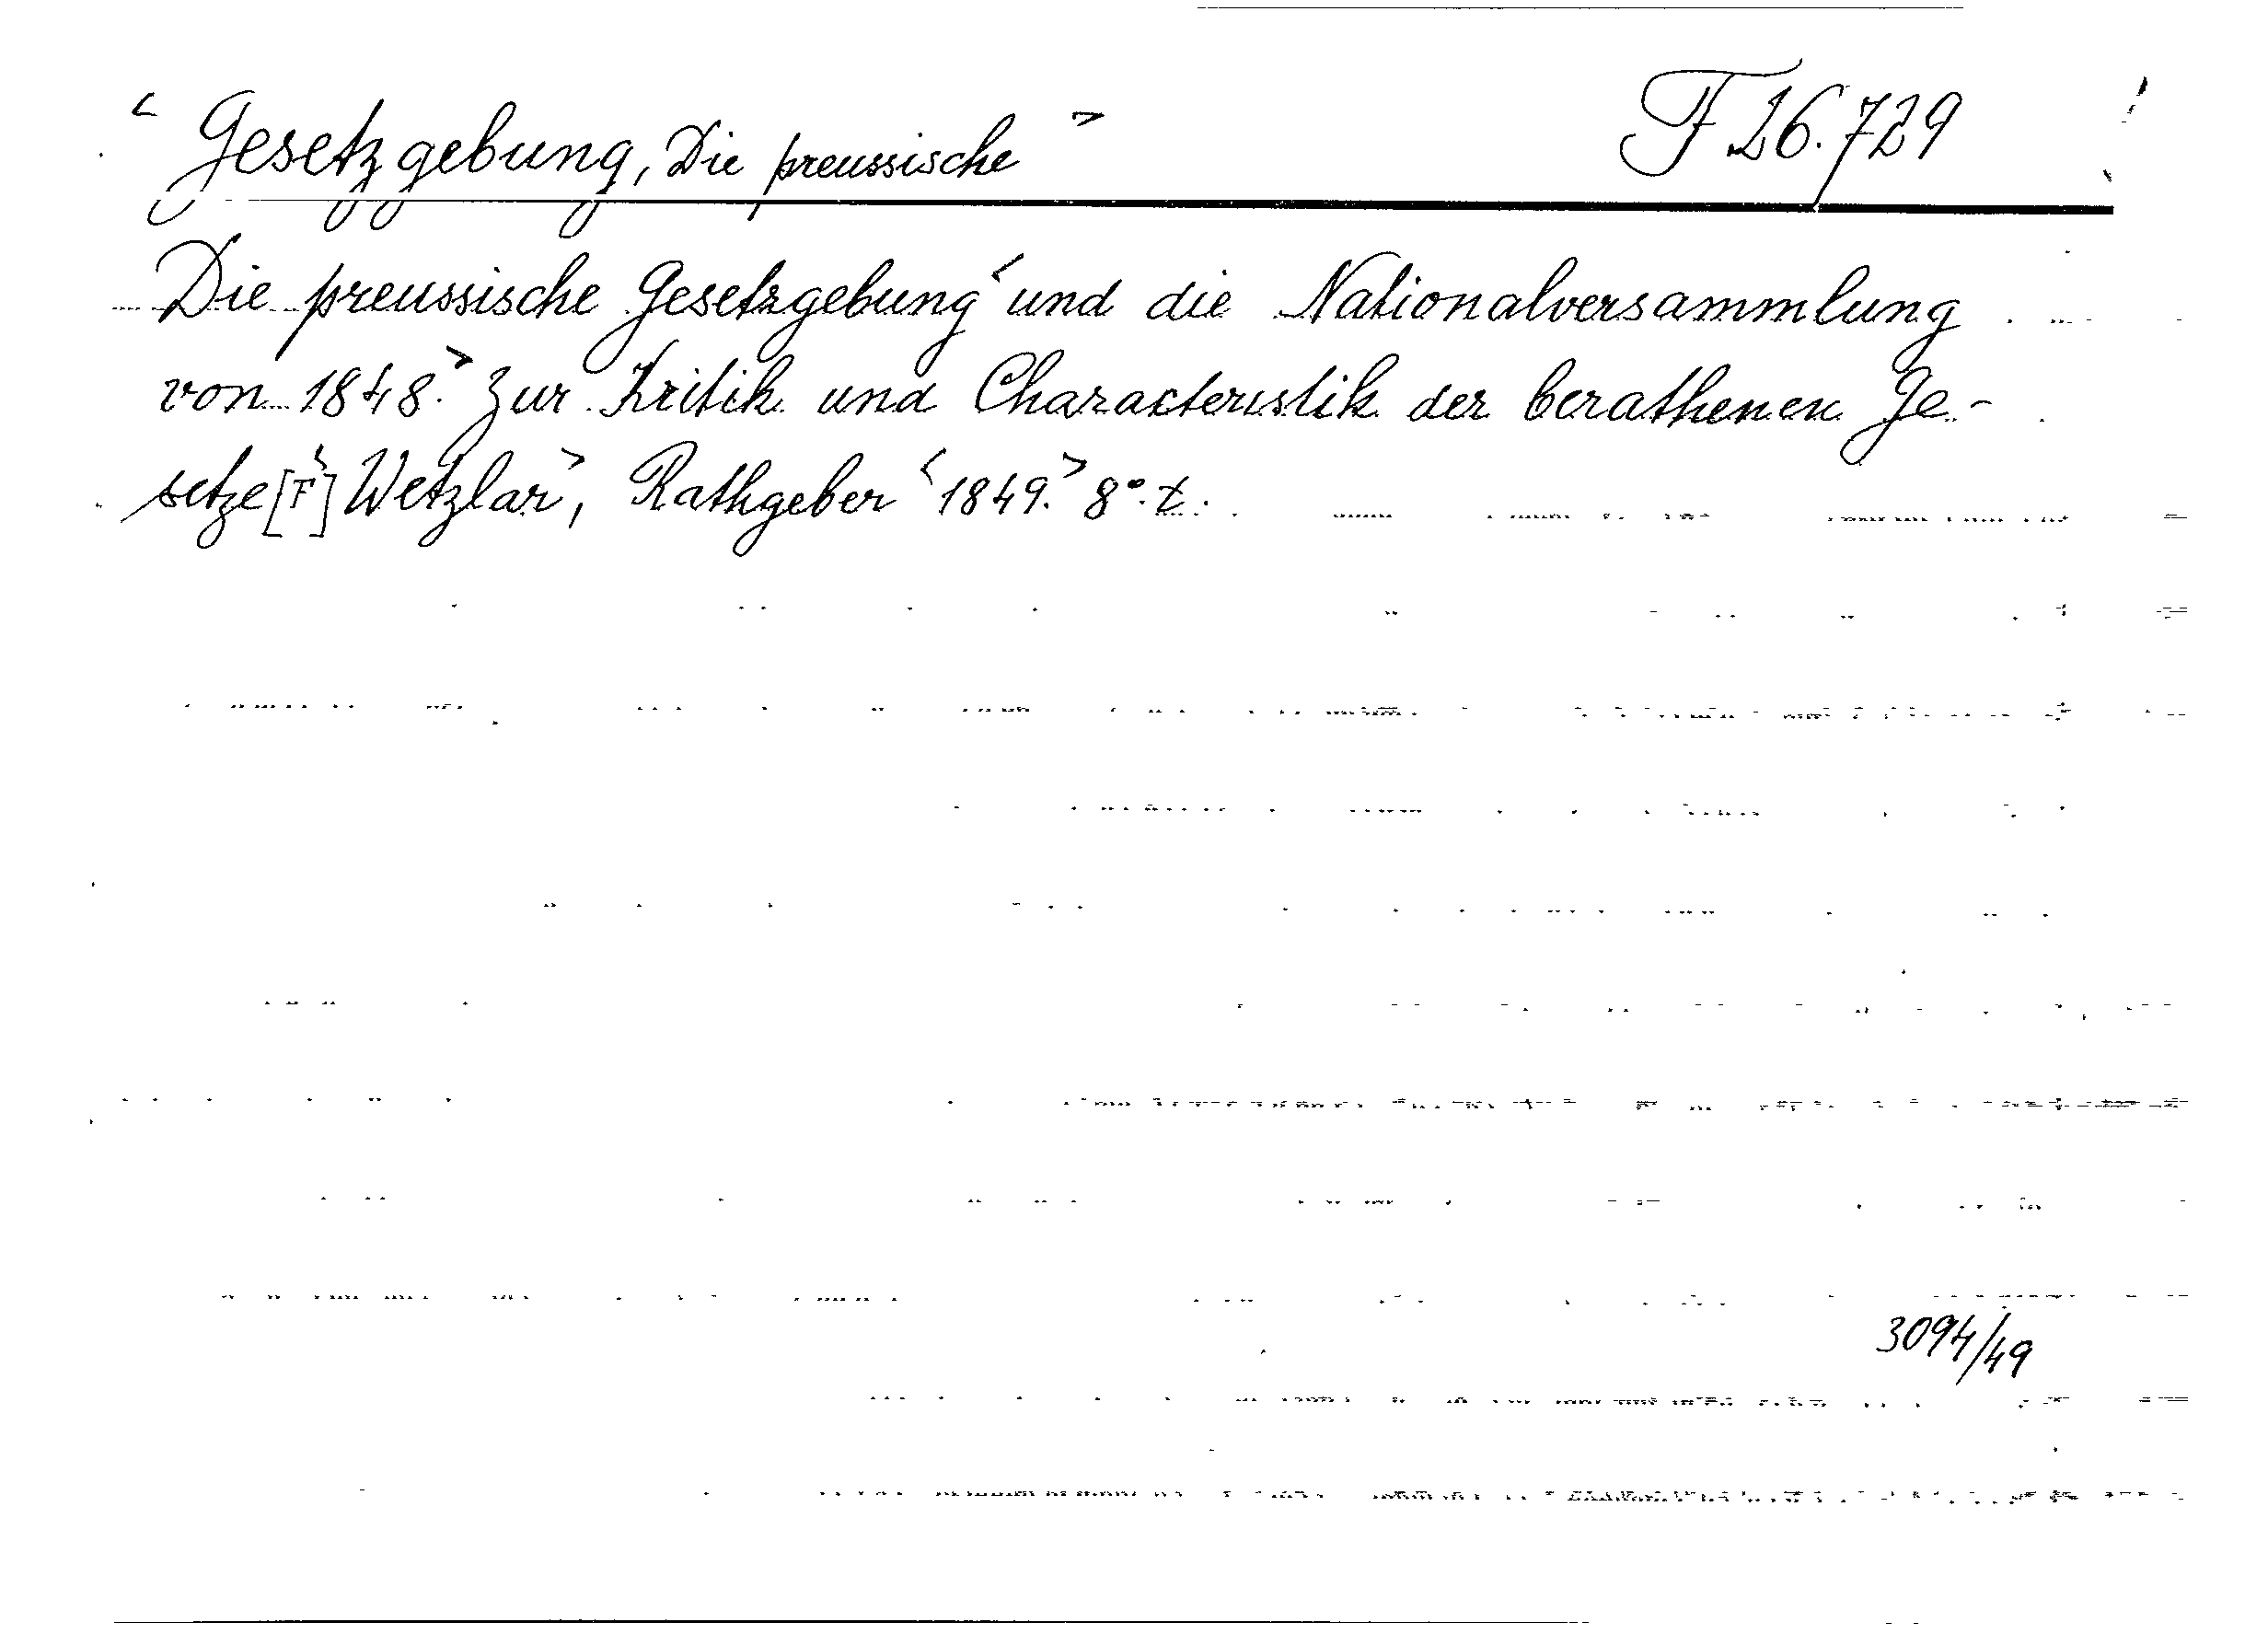 < Gesetzgebung, Die preussische > F 26.729
Die preussische Gesetzgebung < und die Nationalversammlung
von 1848. > Zur Kritik und Charakteristik der berathenen Ge-
setze [F] < Wetzlar >, Rathgeber < 1849. > 8°. t.
3094/49